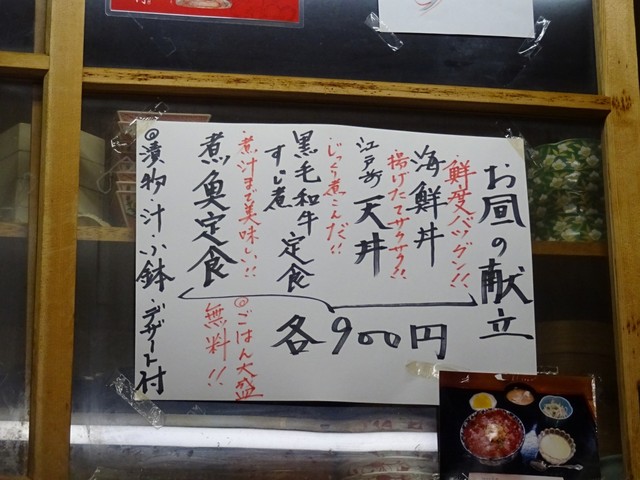 お昼の献立
鮮度バツグン!!
海鮮丼
揚げたてサクサク!!
江戸前 天丼
じっくり煮こんだ!!
黒毛和牛 すじ煮 定食
煮汁まで美味しい!!
煮魚定食
各900円
◎ごはん大盛
無料!!
◎漬物・汁・小鉢・デザート付